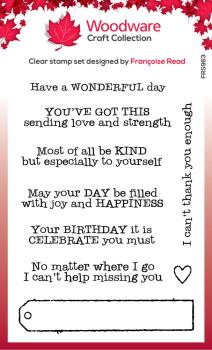 Woodware
Craft Collection
Clear stamp set designed by Françoise Read
FRS963
Have a WONDERFUL day
YOU'VE GOT THIS
sending love and strength
Most of all be KIND
but especially to yourself
I can't thank you enough
May your DAY be filled
with joy and HAPPINESS
Your BIRTHDAY it is
CELEBRATE you must
No matter where I go
I can't help missing you